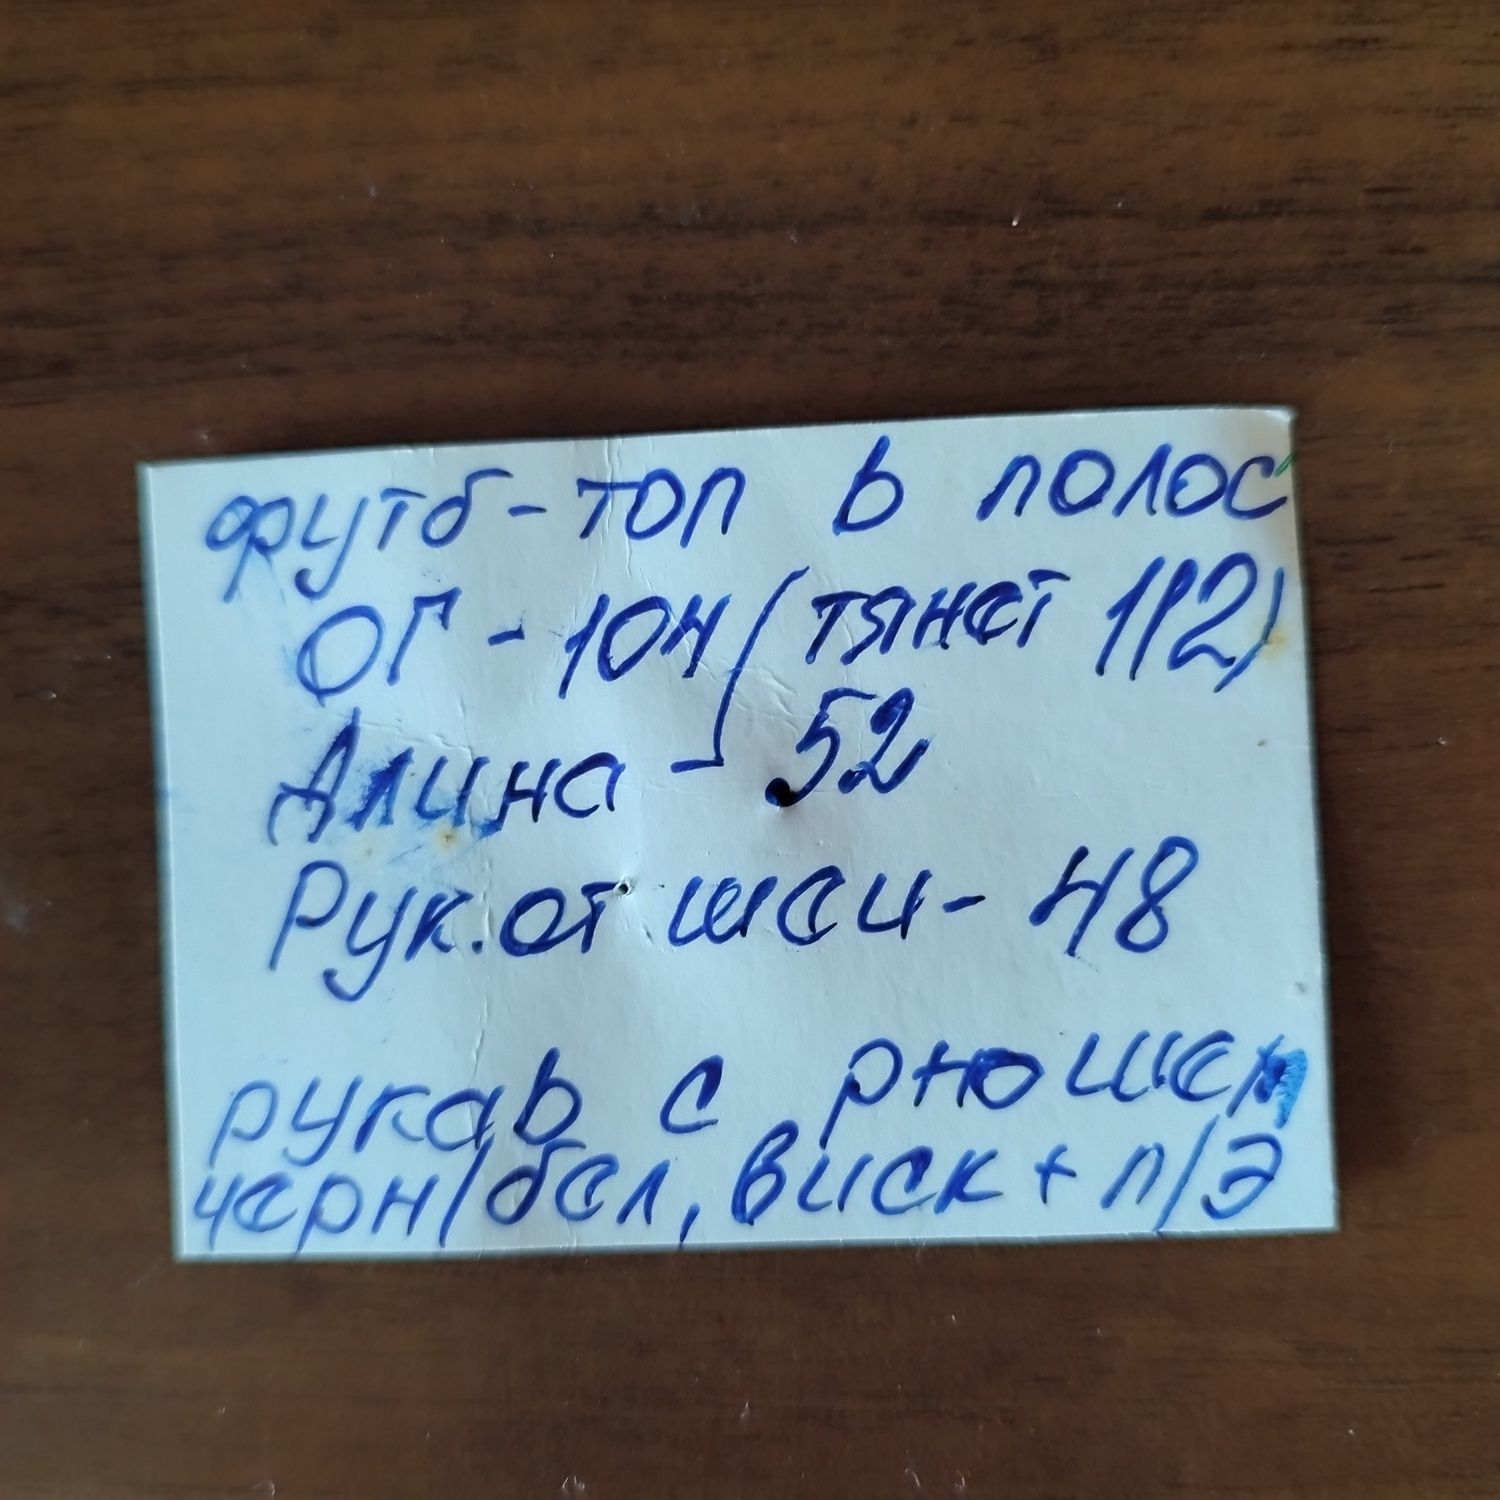 футб-топ в полос
ОГ - 104 (тянет 112)
Длина - 52
Рук. от шеи - 48
рукав с рюшем
черн/бел, виск + п/э